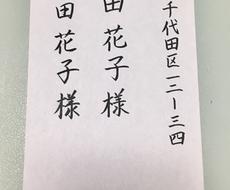 千代田区一二ー三四
田花子様
田花子様